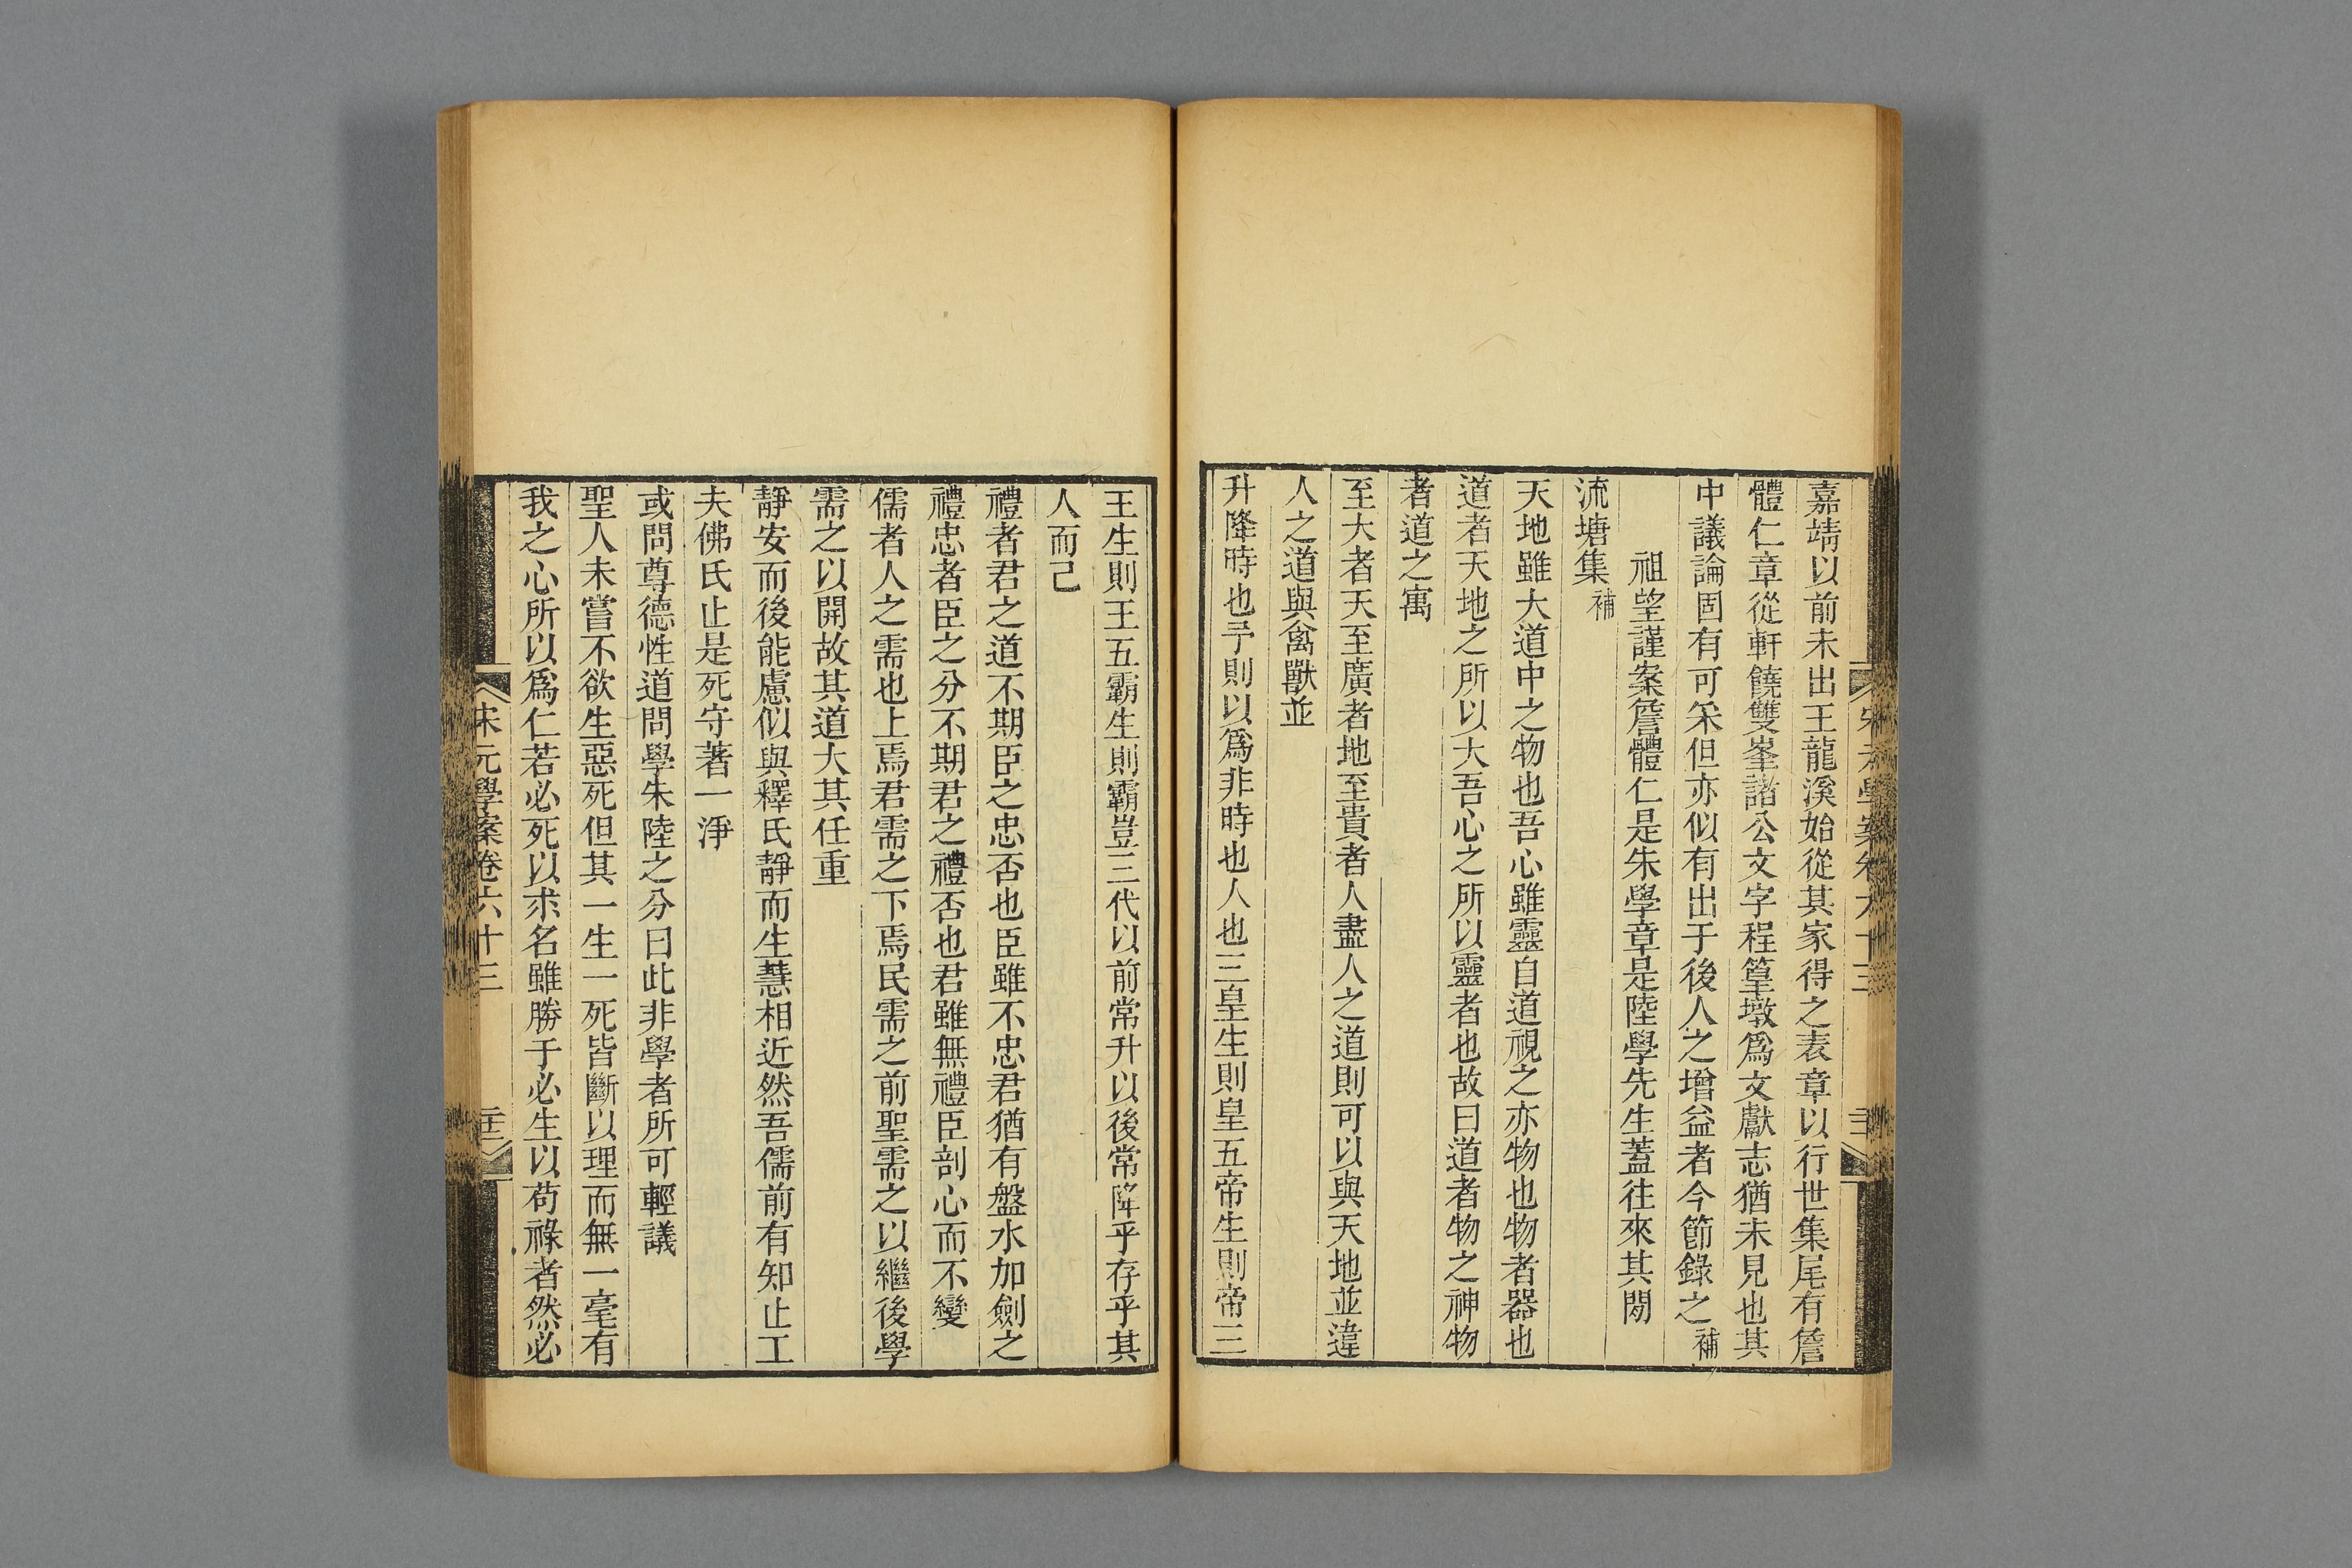 嘉靖以前未出王龍溪始從其家得之表章以行世集尾有詹
體仁章從軒饒雙峯諸公文字程篁墩爲文獻志猶未見也其
中議論固有可采但亦似有出于後人之增益者今節錄之補
祖望謹案詹體仁是朱學章是陸學先生蓋往來其閒
流塘集補
天地雖大道中之物也吾心雖靈自道視之亦物也物者器也
道者天地之所以大吾心之所以靈者也故曰道者物之神物
者道之寓
至大者天至廣者地至貴者人盡人之道則可以與天地並違
人之道與禽獸並
升降時也予則以爲非時也人也三皇生則皇五帝生則帝三
王生則王五霸生則霸豈三代以前常升以後常降乎存乎其
人而己
禮者君之道不期臣之忠否也臣雖不忠君猶有盤水加劍之
禮忠者臣之分不期君之禮否也君雖無禮臣剖心而不變
儒者人之需也上焉君需之下焉民需之前聖需之以繼後學
需之以開故其道大其任重
靜安而後能慮似與釋氏靜而生慧相近然吾儒前有知止工
夫佛氏止是死守著一淨
或問尊德性道問學朱陸之分曰此非學者所可輕議
聖人未嘗不欲生惡死但其一生一死皆斷以理而無一毫有
我之心所以爲仁若必死以求名雖勝于必生以苟祿者然必
宋元學案卷六十三